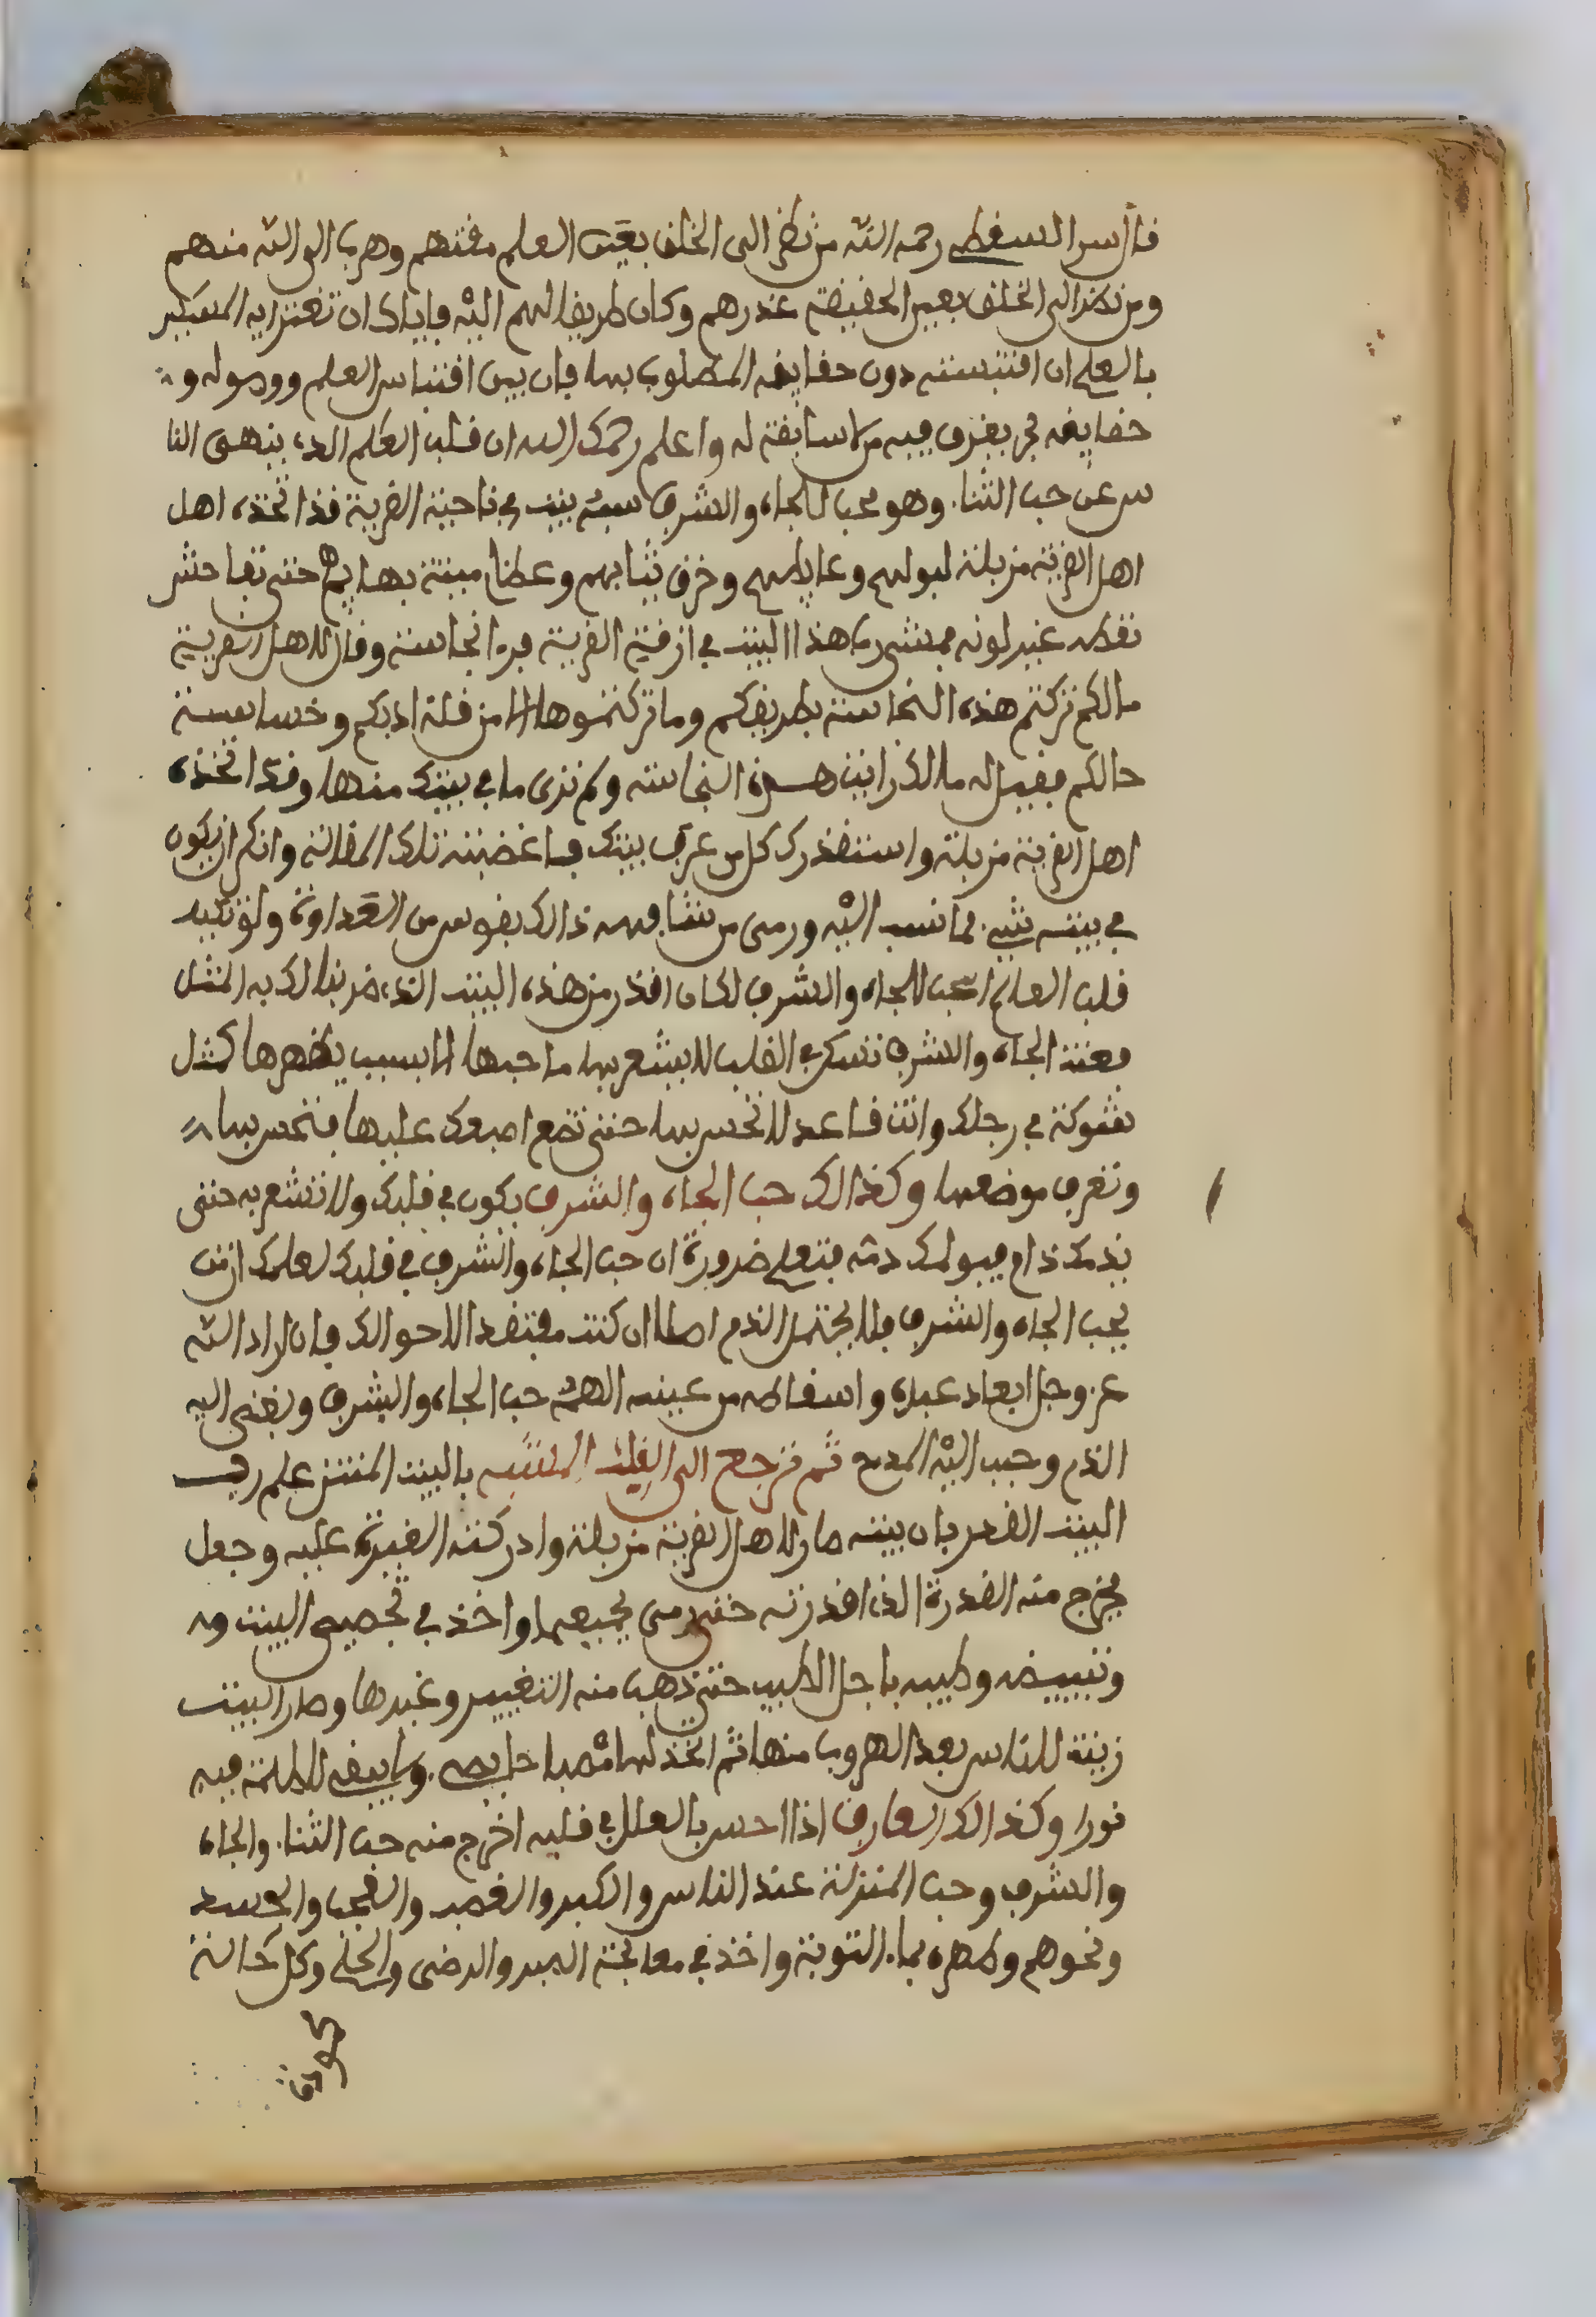 قال سر السقطي رحمه الله من نظر الى الخلق بعين العلم مقتهم وهرب الى الله منهم
ومن نظر الى الخلق بعين الحقيقة عذرهم وكان طريقا لهم اليه فاياك ان تغتر ايه المسكين
بالعلم ان اقتبسته دون حقايقه المطلوب بها فان بين اقتباس العلم ووصوله و
حقايقه بحر يغرق فيه من لا سابقة له واعلم رحمك الله ان قلب العلم الذي ينهى النا
س عن حب الثناء وهو محب للجاه والشرف شبه بيت في ناحية القرية قد اتخذه اهل
اهل القرية مزبلة لبولهم وغايطهم وخرق ثيابهم وعظام ميتة بهايمهم حتى تفاحش
نفطه غير لونه فمشى رب هذا البيت في ازقية القرية فرءا نجاسة وقال لاهل القرية
ما لكم تركتم هذه النجاسة بطريقكم وما تركتموها الا من قلة ادبكم وخساسة
حالكم فقيل له ما لك رايت هذه النجاسة ولم ترى ما في بيتك منها وقد اتخذه
اهل القرية مزبلة واستقذرك كل من عرف بيتك فاغضبته تلك المقالة وانكر ان يكون
في بيته شيء مما نسب اليه ورمى من شافهه ذالك بقوس من العداوة ولو تشبه
قلب العالم المحب للجاه والشرف لكان اقذر من هذه البيت الذي ضربنا لك به المثل
فعلة الجاه والشرف تسكن في القلب لا يشعر بها صاحبها الا بسبب يظهرها كمثل
شوكة في رجلك وانت قاعد لا تحس بها حتى تضع اصبعك عليها فتحس بها
وتعرف موضعها وكذالك حب الجاه والشرف يكون في قلبك ولا تشعر به حتى
يذمك ذام فيولمك ذمه فتعلم ضرورة ان حب الجاه والشرف في قلبك لعلمك ان من
يحب الجاه والشرف فلا يحتمل الذم اصلا ان كنت مفتقدا لاحوالك فان اراد الله
عز وجل ابعاد عبده واسقاطه من عينه الهمه حب الجاه والشرف وبغض اليه
الذم وحبب اليه المدح ثم نرجع الى القلب المشبه بالبيت المنتن علم رب
البيت القذر بان بيته صار لاهل القرية مزبلة وادركته الغيرة عليه وجعل
يخرج منه القذرة الذي اقذرته حتى رمى بجميعها واخذ في تجصيص البيت
وتبييضه وطيبه باجل الطيب حتى ذهب منه التغيير وغيرها وصار البيت
زينة للناس بعد الهروب منها ثم اتخذ لها مصباحا يضيء ولم يبق للظلمة فيه
نورا وكذالك العارف اذا احس بالعلل في قلبه اخرج منه حب الثناء والجاه
والشرف وحب المنزلة عند الناس والكبر والغضب والعجب والحسد
ونحوهم وطهره بماء التوبة واخذ في معالجة الصبر والرضى والحلم وكل حالة